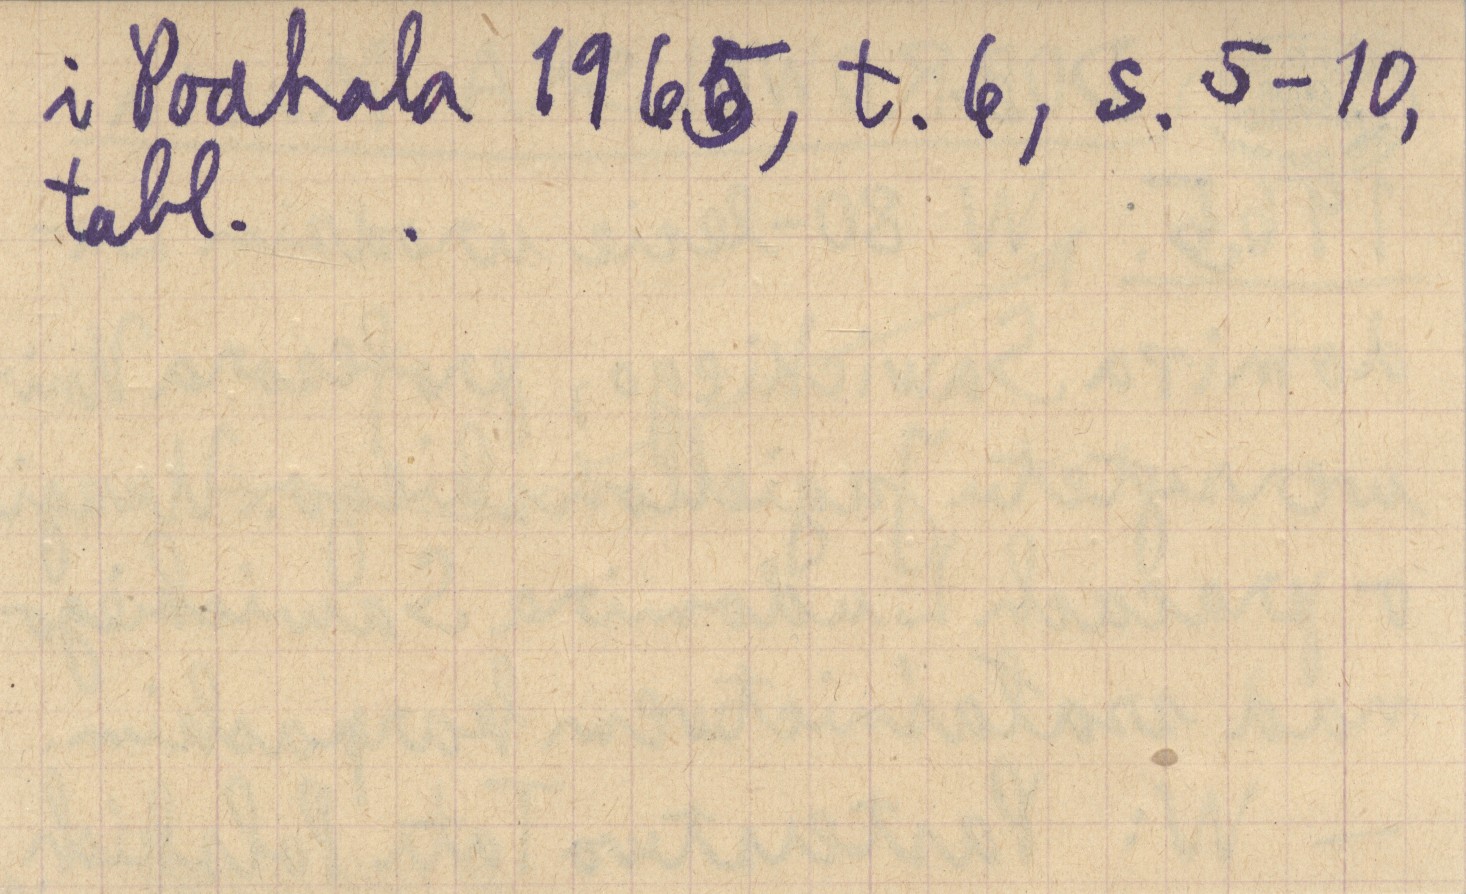 i Podhala 1965, t. 6, s. 5-10,
tabl.